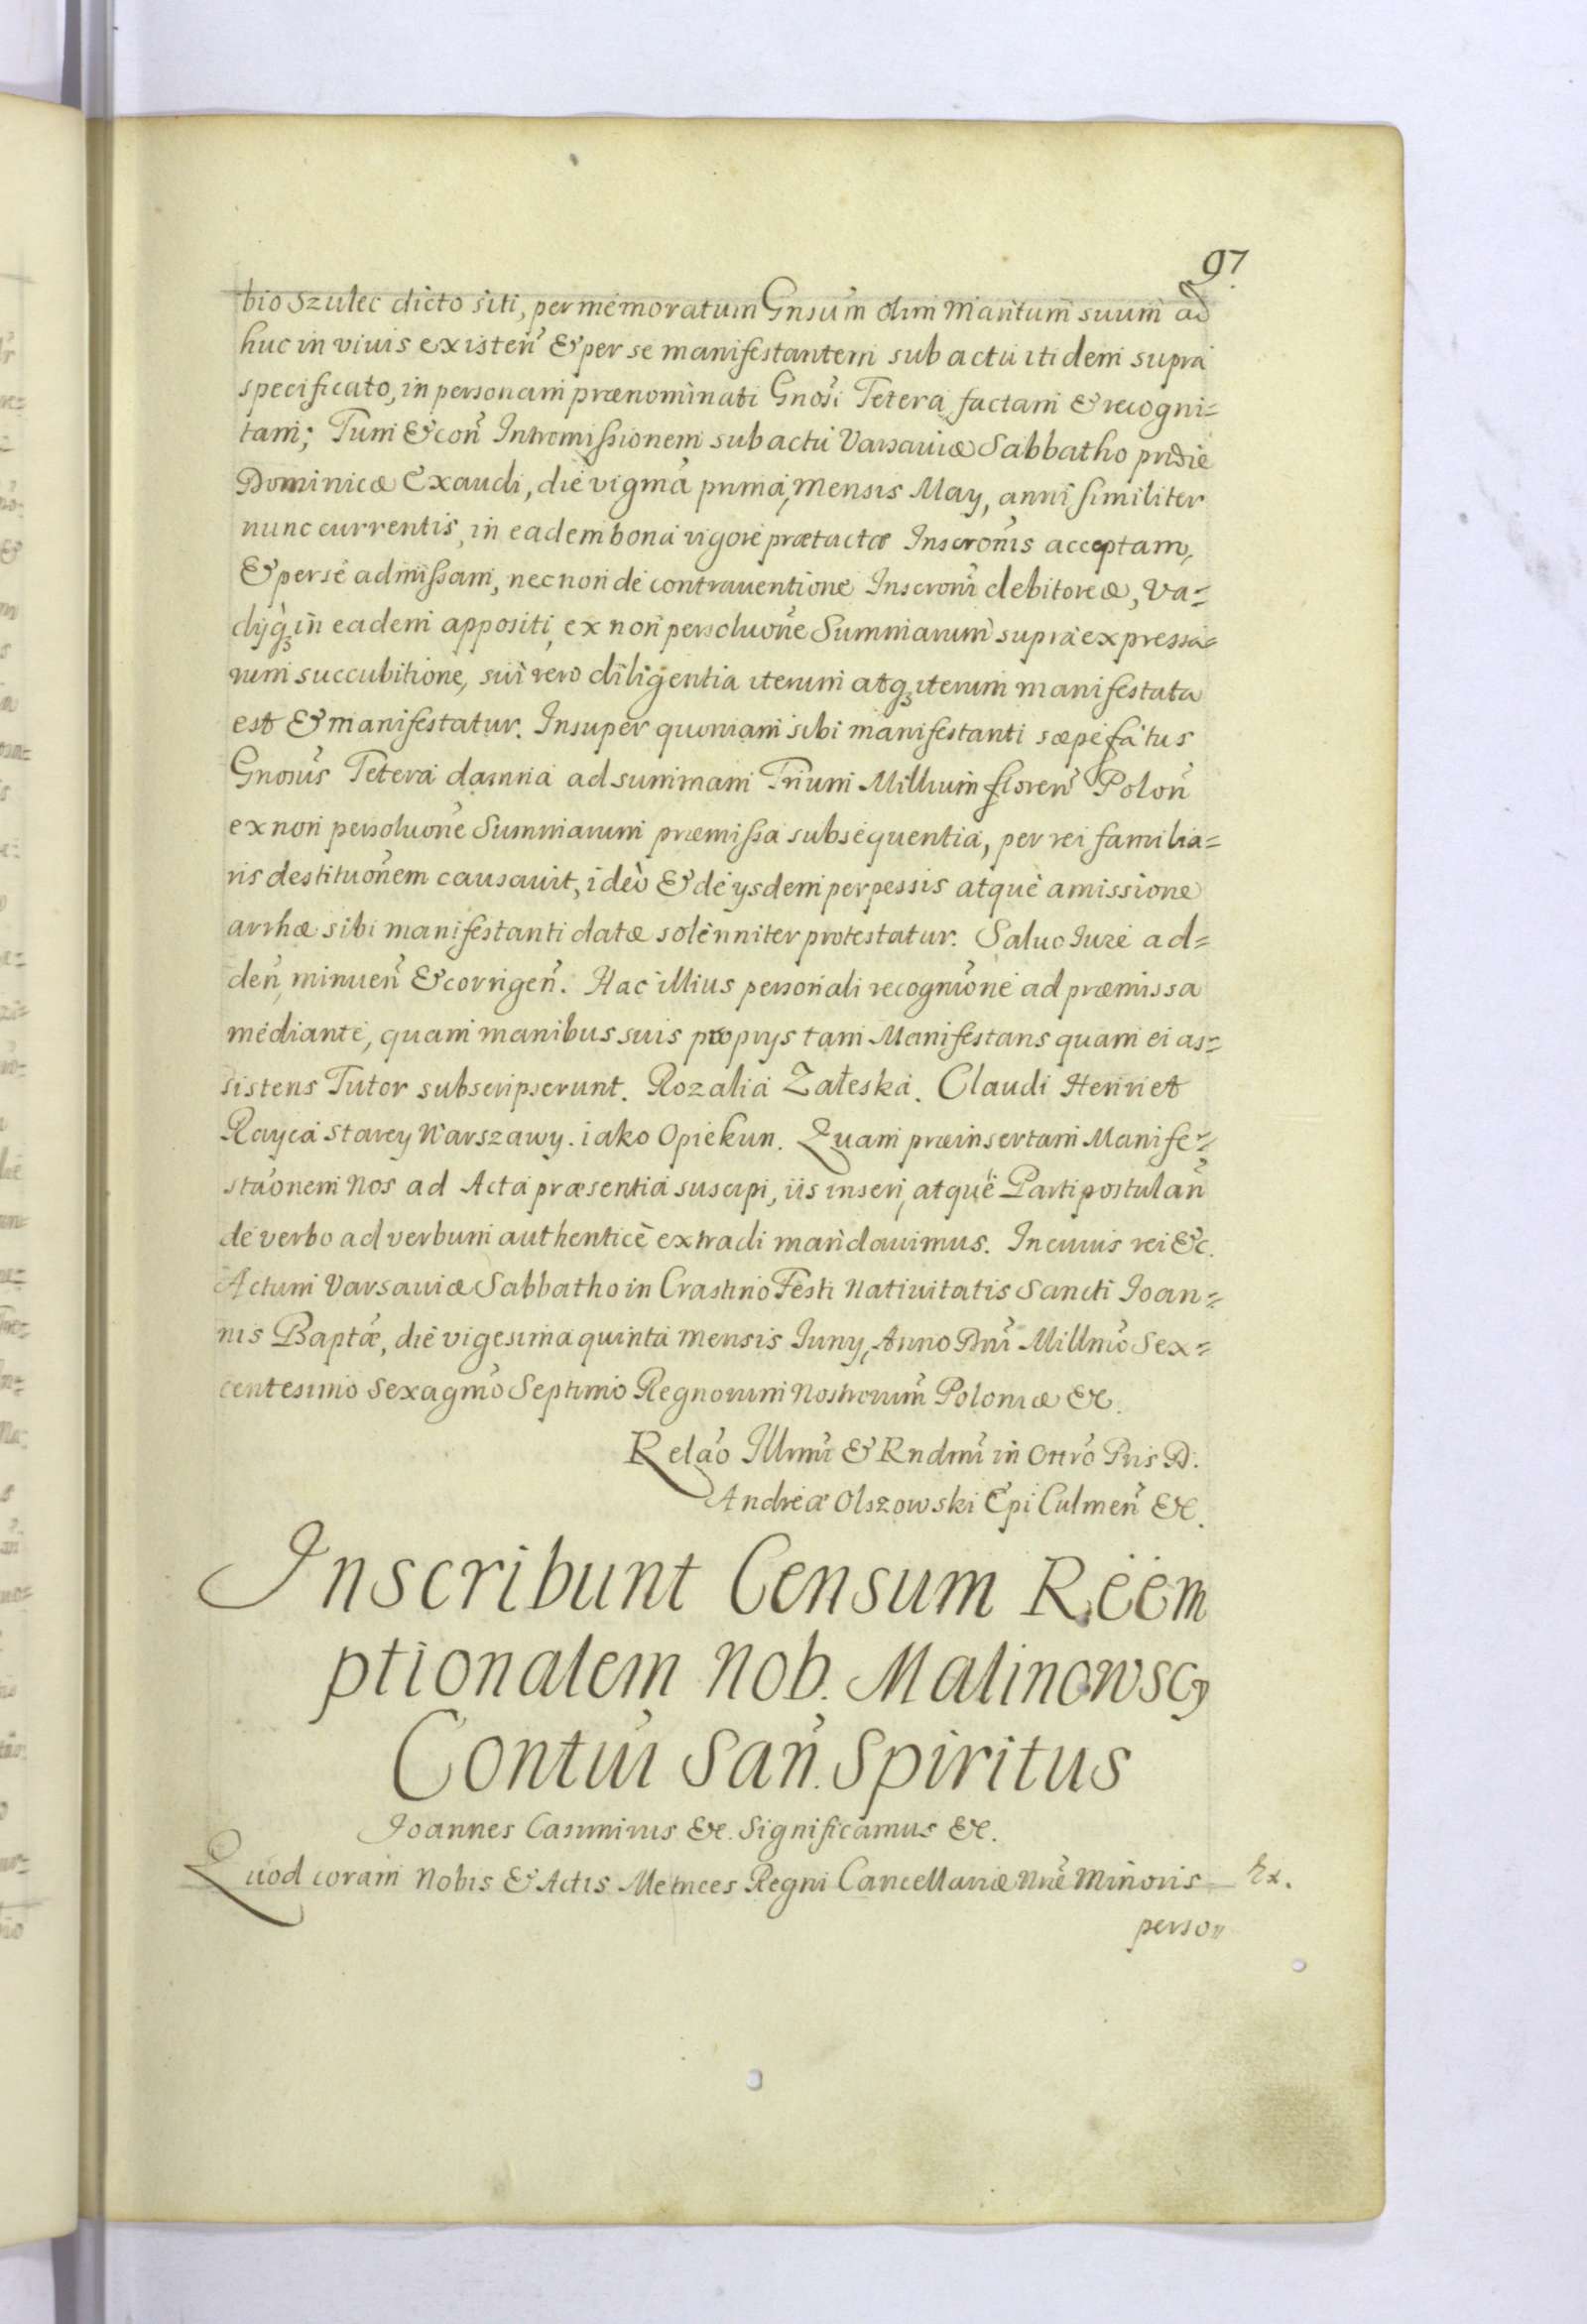 97
bio Szulec dicto siti, per memoratum Gnsum olim Maritum suum ad
huc in viuis existen̄ & per se manifestantem sub actu itidem supra
specificato, in personam prænominati Gnosi Tetera factam & recogni=
tam; Tum & con̄ Intromissionem sub actu Varsauiæ Sabbatho pridie
Dominicæ Exaudi, die vigma prima, Mensis May, anni similiter
nunc currentis, in eadem bona vigore prætactæ Inscronis acceptam,
& per se admissam, nec non de contrauentione Inscroni debitoreæ, Va=
dijq; in eadem appositi, ex non persoluone Summarum supra expressa=
rum succubitione, sui vero diligentia iterum atq; iterum manifestata
est & manifestatur. Insuper quoniam sibi manifestanti sæpe fatus
Gnosus Tetera damna ad summam Trium Millium floren̄ Polon̄
ex non persoluone Summarum præmissa subsequentia, per rei familia=
ris destituonem causauit, ideò & de ysdem perpessis atque amissione
arrhæ sibi manifestanti datæ solenniter protestatur. Saluo Iure ad=
den̄, minuen̄ & corrigen̄. Hac illius personali recognione ad præmissa
mediante, quam manibus suis proprys tam Manifestans quam ei as=
sistens Tutor subscripserunt. Rozalia Załeska. Claudi Henriet
Rayca Starey Warszawy. iako Opiekun. Quam præinsertam Manife=
staonem Nos ad Acta præsentia suscipi, iis inseri, atque Parti postulan̄
de verbo ad verbum authenticè extradi mandauimus. In cuius rei &c.
Actum Varsauiæ Sabbatho in Crastino Festi Natiuitatis Sancti Ioan=
nis Baptæ, die vigesima quinta Mensis Iuny, Anno Dni Millmo Sex=
centesimo Sexagmo Septimo Regnorum Nostrorum Poloniæ &c.
Relao Illmi & Rndmi in Chro Pris D.
Andreæ Olszowski Epi Culmen̄ &c.
Inscribunt Censum Reem
ptionalem Nob. Malinowscy
Contui San̄. Spiritus
Joannes Casimirus &c. Significamus &c.
Quod coram Nobis & Actis Metrices Regni Cancellariæ Nræ Minoris Ex.
perso=